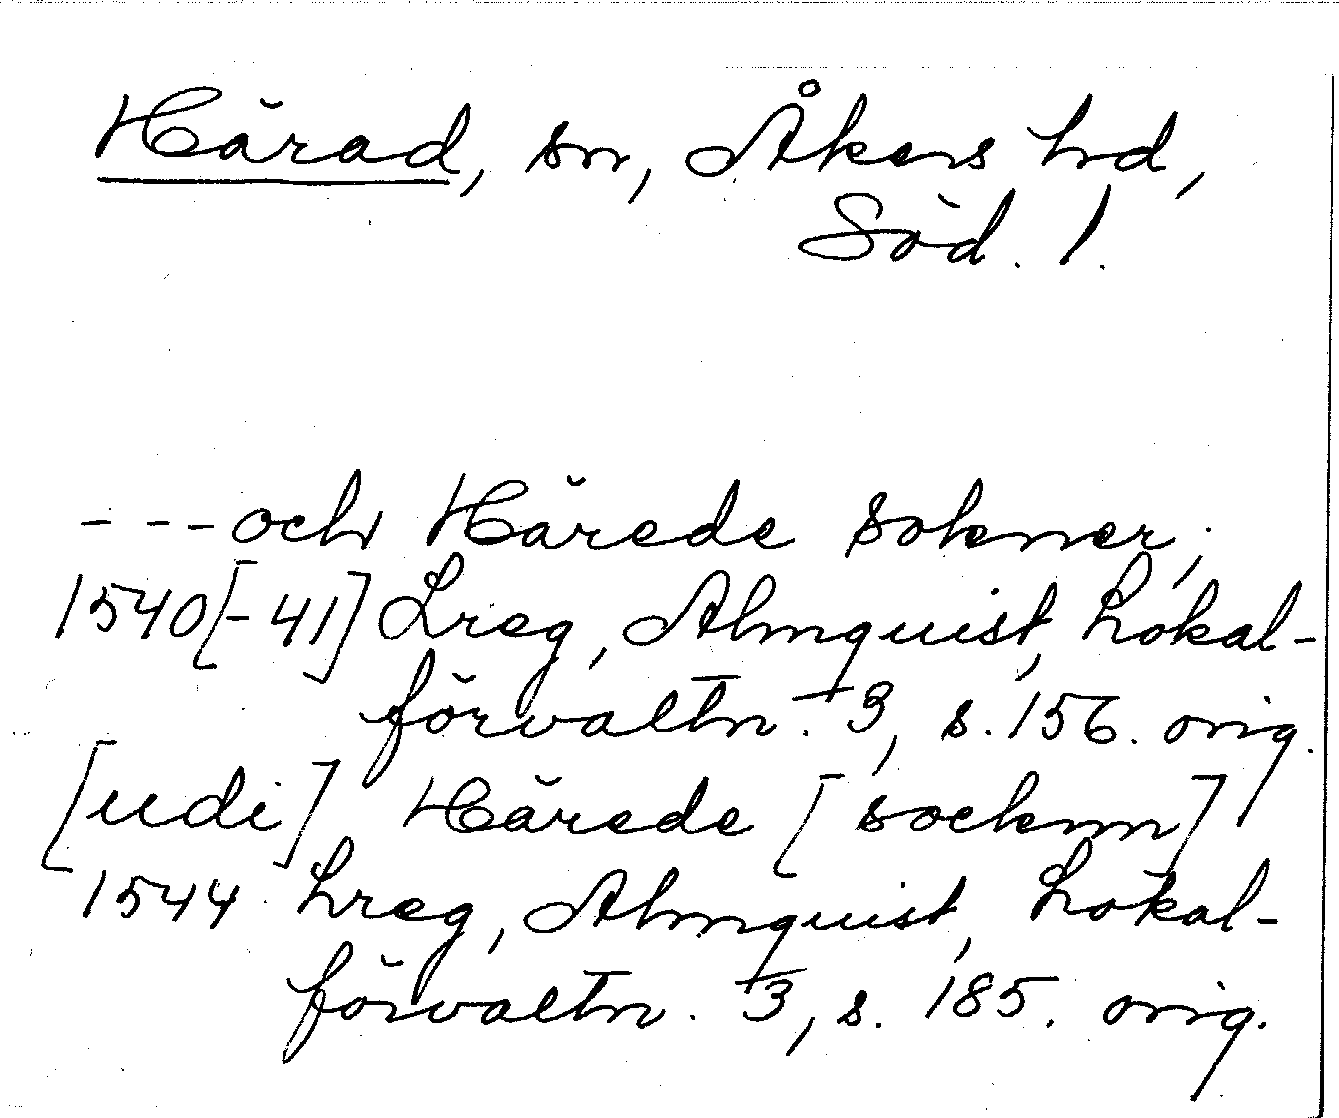 Härad, sn, Åkers hd,
Söd. l.
--- och Härede sokner,
1540[-41] Lreg, Almquist, Lokal-
förvaltn. 3, s. 156. orig.
[udi] Härede [socknn]
1544 Lreg, Almquist, Lokal-
förvaltn. 3, s. 185. orig.